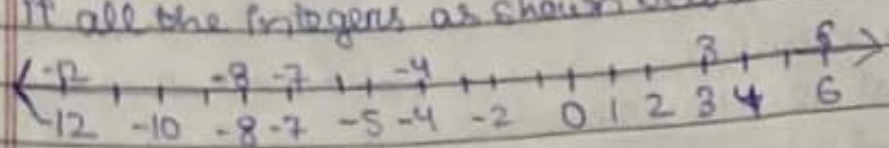 it all the Integers as shown
-12 -8 -7 -4 3 6
-12 -10 -8 -7 -5 -4 -2 0 1 2 3 4 6